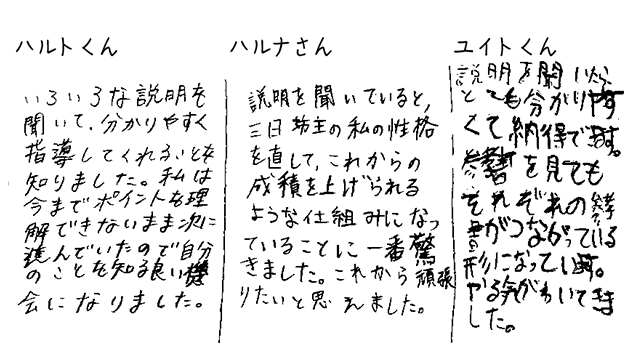 ハルトくん
いろいろな説明を
聞いて、分かりやすく
指導してくれることを
知りました。私は
今までポイントを理
解できないまま次に
進んでいたので自分
のことを知る良い機
会になりました。
ハルナさん
説明を聞いていると、
三日坊主の私の性格
を直して、これからの
成積を上げられる
ような仕組みになっ
ていることに一番驚
きました。これから頑張
りたいと思えました。
ユイトくん
説明を聞いたら
とても分かりやす
くて納得です。
参考書を見ても
それぞれの参考
書がつながっている
形になっています。
やる気がわいてきま
した。